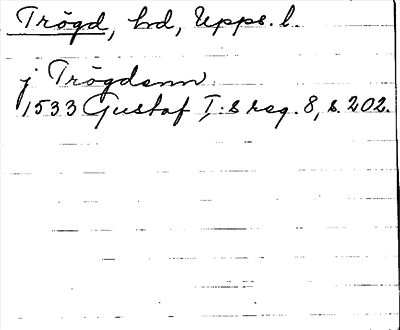 Trögd, hd, Upps. l.
j Trögdenn
1533 Gustaf I:s reg. 8, s. 202.